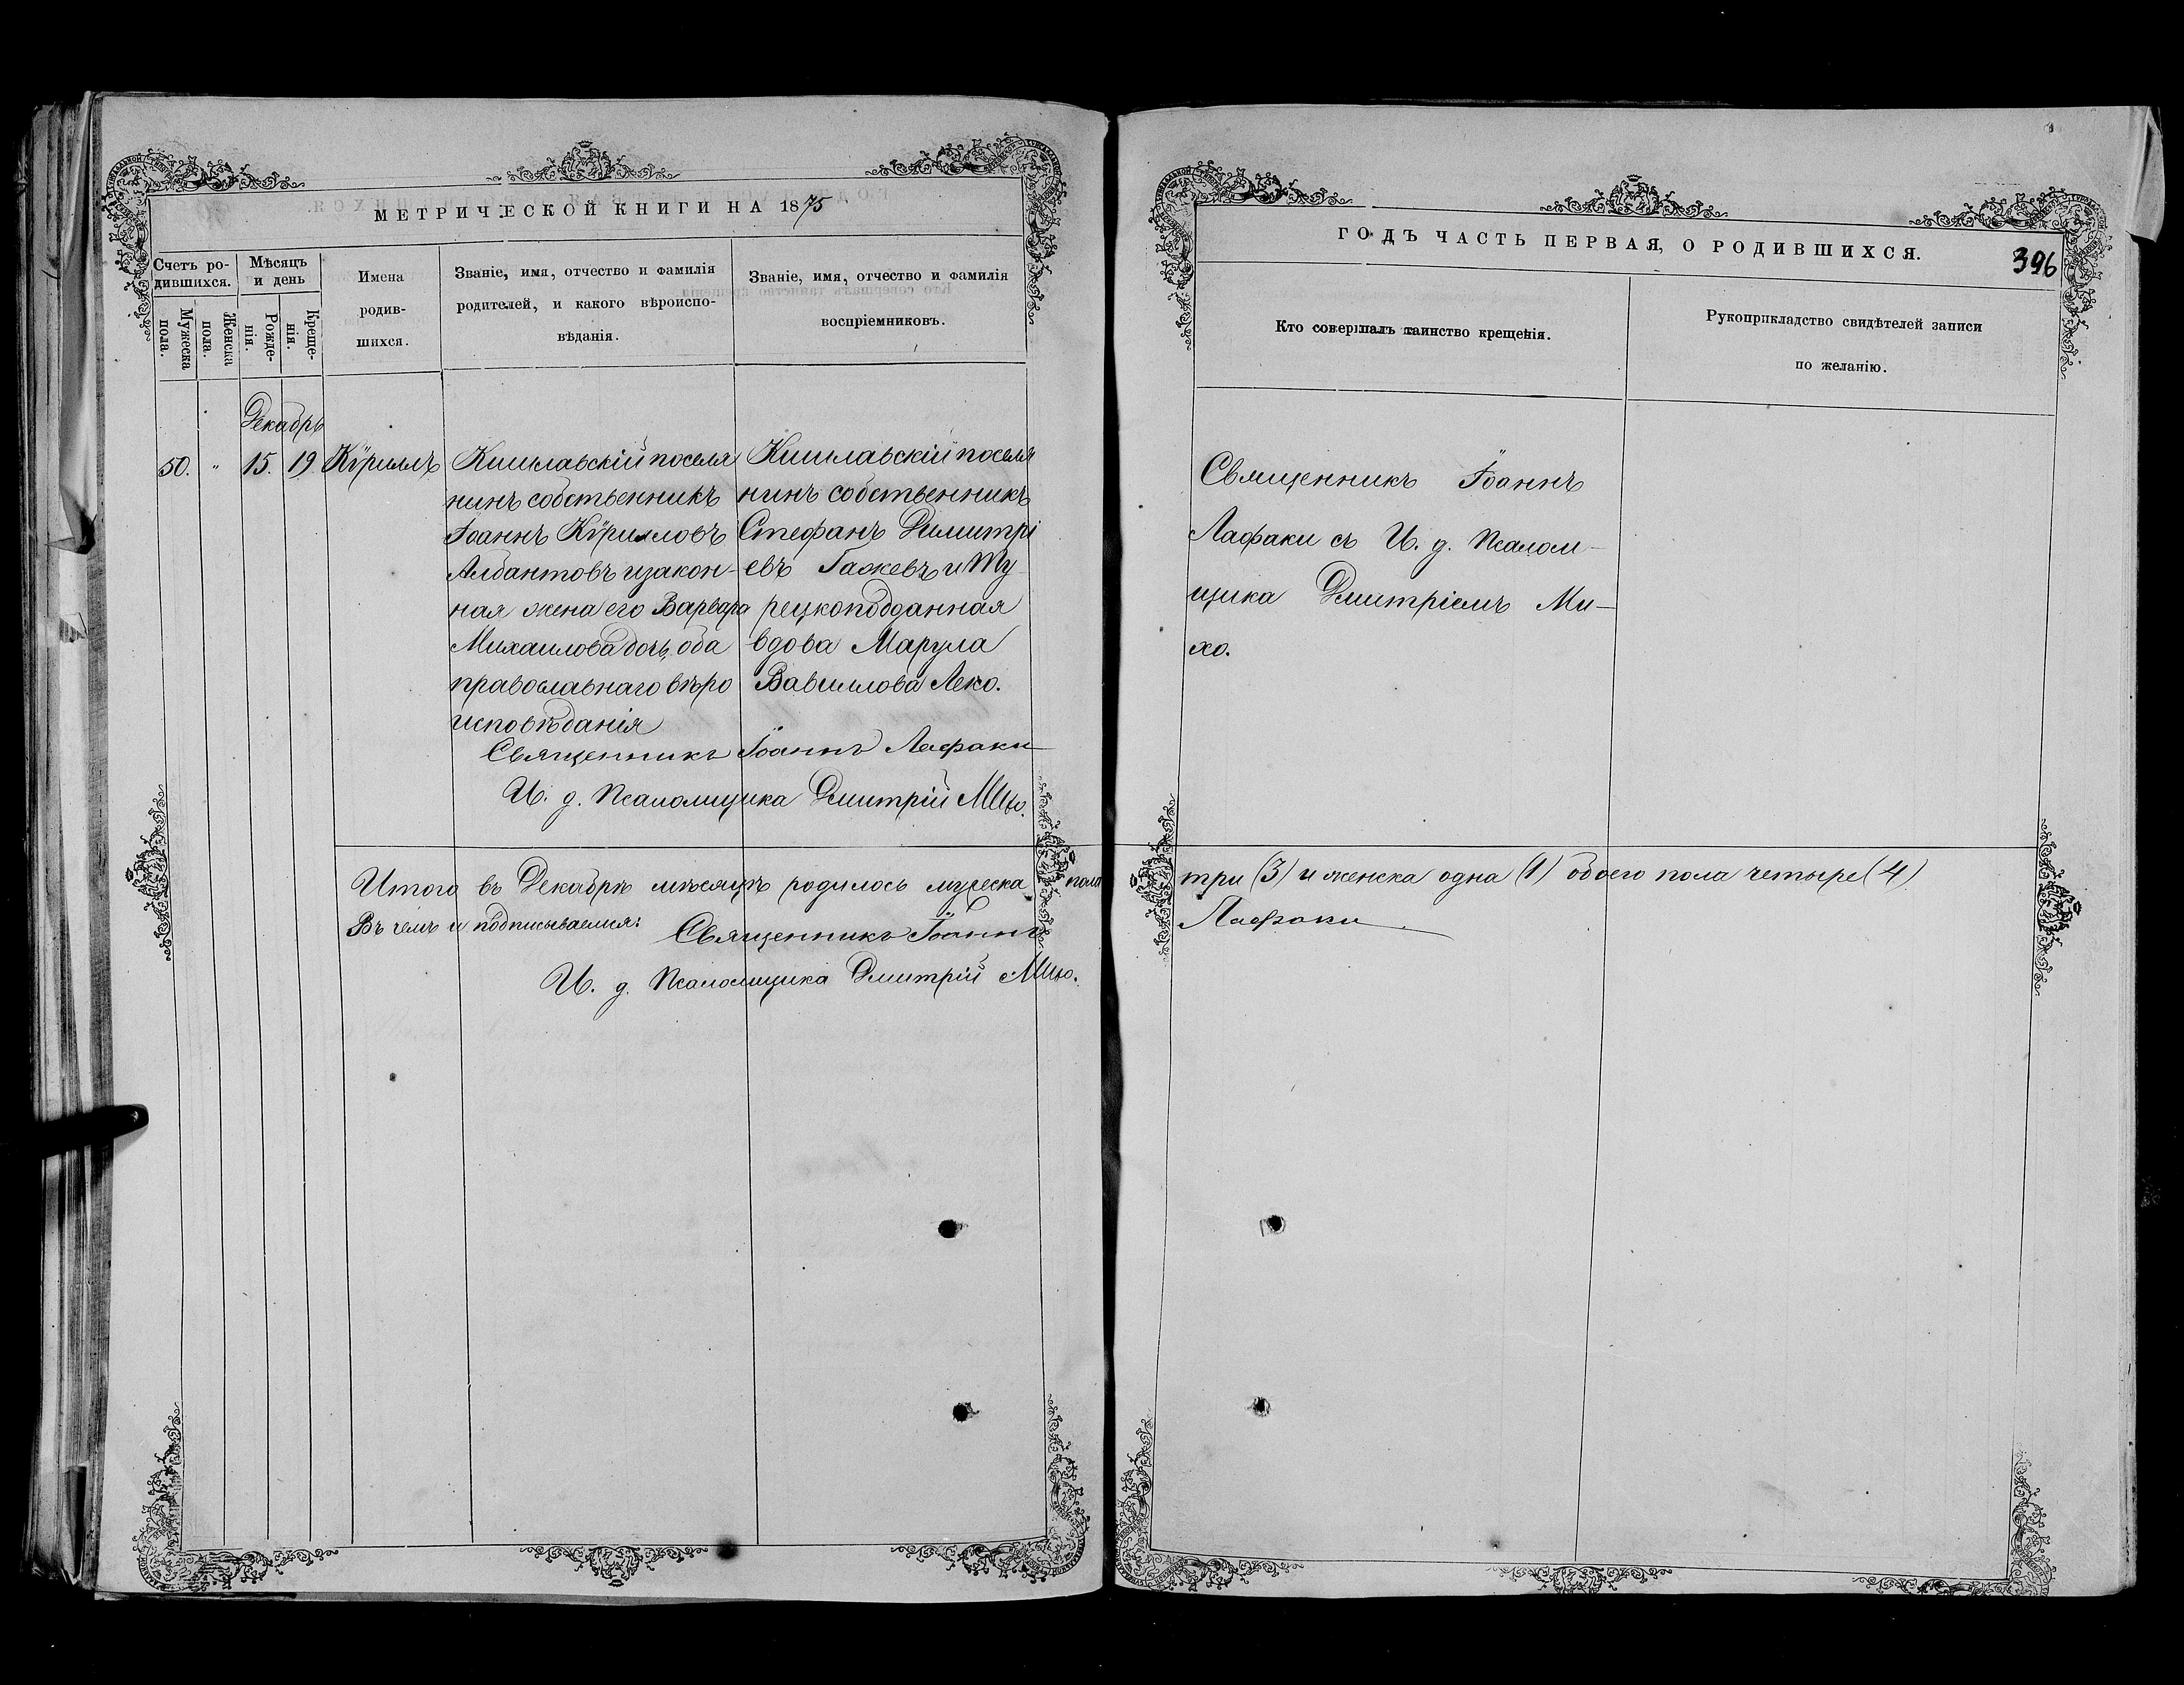 МЕТРИЧЕСКОЙ КНИГИ НА 1875
Счетъ ро-
дившихся.
Мужеска
пола.
Женска
пола.
Мѣсяцъ
и день
Рожде-
нія.
Креще-
нія.
Имена
родив-
шихся.
Званіе, имя, отчество и фамилія
родителей, и какого вѣроиспо-
вѣданія.
Званіе, имя, отчество и фамилія
воспріемниковъ.
Декабрь
50. " 15. 19. Кѵриллъ
Кишлавскій поселя
нинъ собственникъ
Іоаннъ Кѵрилловъ
Албантовъ и закон-
ная жена его Варвара
Михаилова дочь, оба
православнаго вѣро
исповѣданія
Кишлавскій поселя
нинъ собственникъ
Стефанъ Димитрі
евъ Гажевъ и Ту
рецкоподданная
вдова Марула
Вавилова Леко.
Священникъ Іоаннъ Лафаки
И. д. Псаломщика Дмитрій Михо.
Итого въ Декабрѣ мѣсяцѣ родилось мужеска пола
Въ чемъ и подписываемся: Священникъ Іоаннъ
И. д. Псаломщика Дмитрій Михо.
ГОДЪ ЧАСТЬ ПЕРВАЯ, О РОДИВШИХСЯ.
396
Кто совершалъ таинство крещенія.
Рукоприкладство свидѣтелей записи
по желанію.
Священникъ Іоаннъ
Лафаки съ И. д. Псалом-
щика Дмитріемъ Ми-
хо.
три (3) и женска одна (1) обоего пола четыре (4)
Лафаки